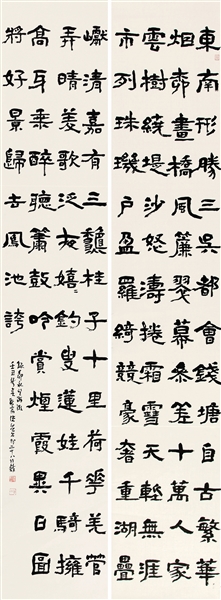 東南形勝三吳都會錢塘自古繁華
烟柳畫橋風簾翠幕參差十萬人家
雲樹繞堤沙怒濤捲霜雪天塹無涯
市列珠璣戶盈羅綺競豪奢重湖疊
巘清嘉有三龝桂子十里荷華羌管
弄晴菱歌泛夜嬉〻釣叟蓮娃千騎擁
高牙乘醉聽簫鼓吟賞煙霞異日圖
將好景歸去鳳池誇